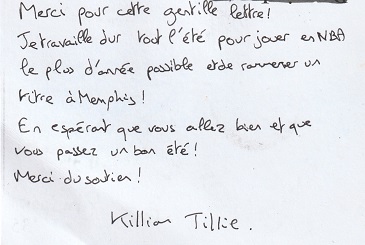 Merci pour cette gentille lettre!
Je travaille dur tout l'été pour jouer en NBA
le plus d'année possible et de ramener un
titre à Memphis!
En espérant que vous allez bien et que
vous passez un bon été!
Merci du soutien!
Killian Tillie.